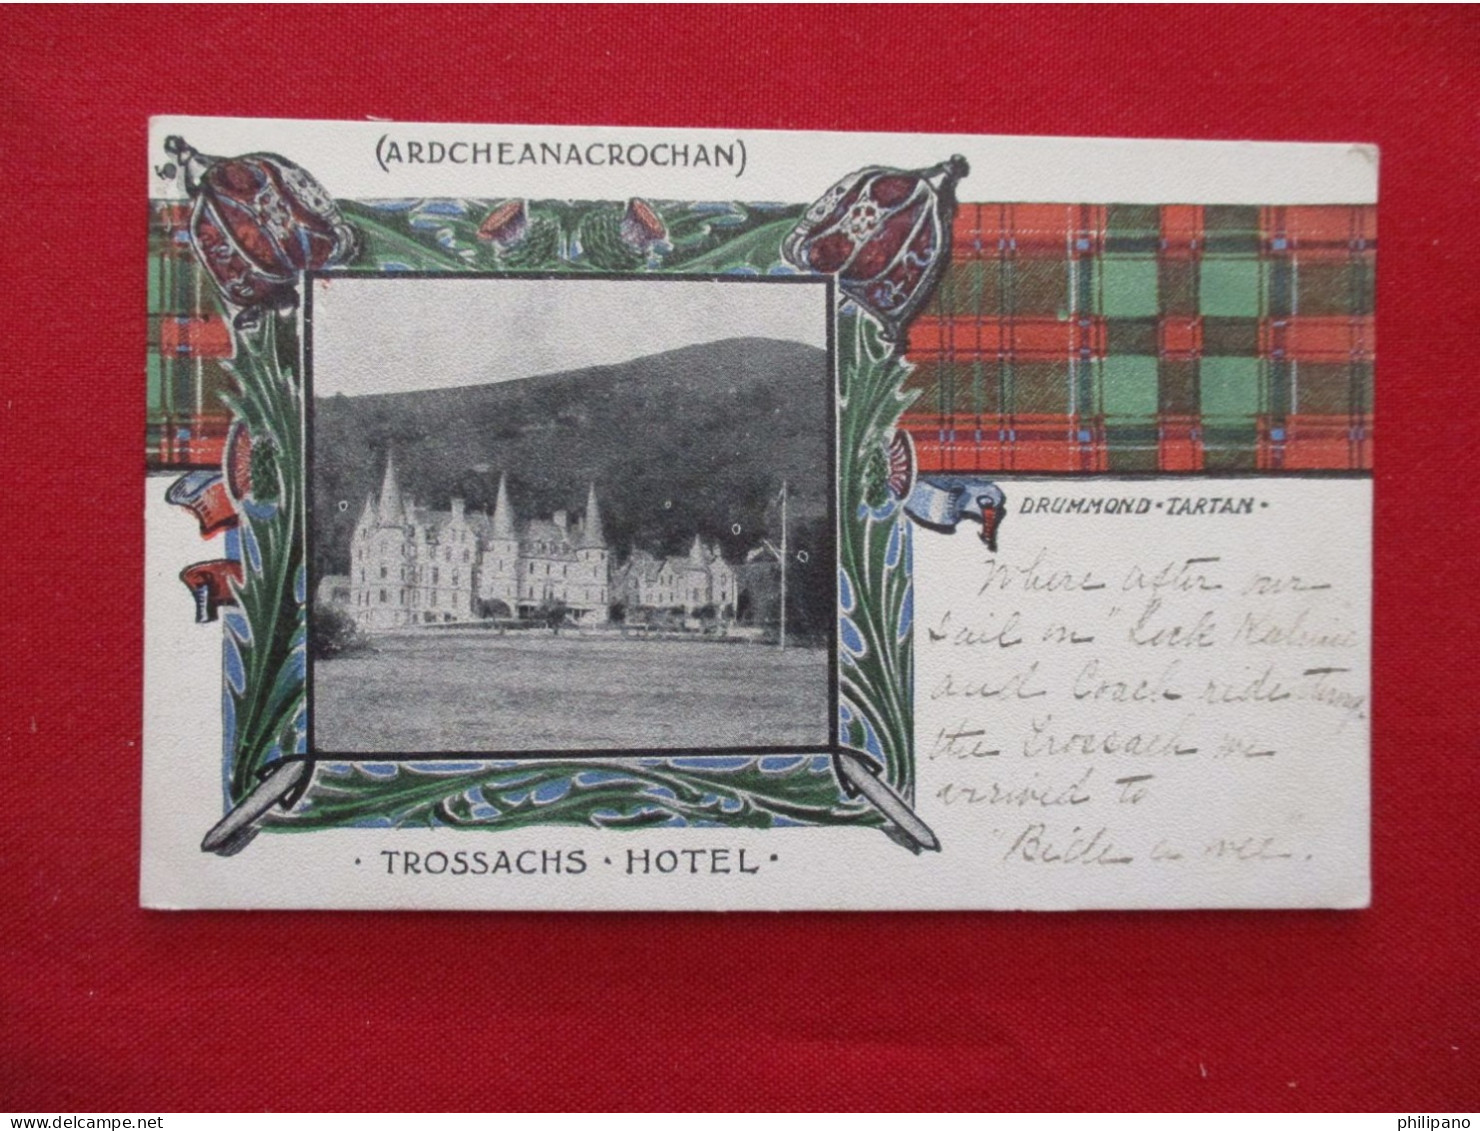 (ARDCHEANACROCHAN)
DRUMMOND · TARTAN ·
Where after our
sail on "Lock Katrine
and Coach ride
the Trossach we
arrived to
"Bide a wee".
· TROSSACHS · HOTEL ·
philipano